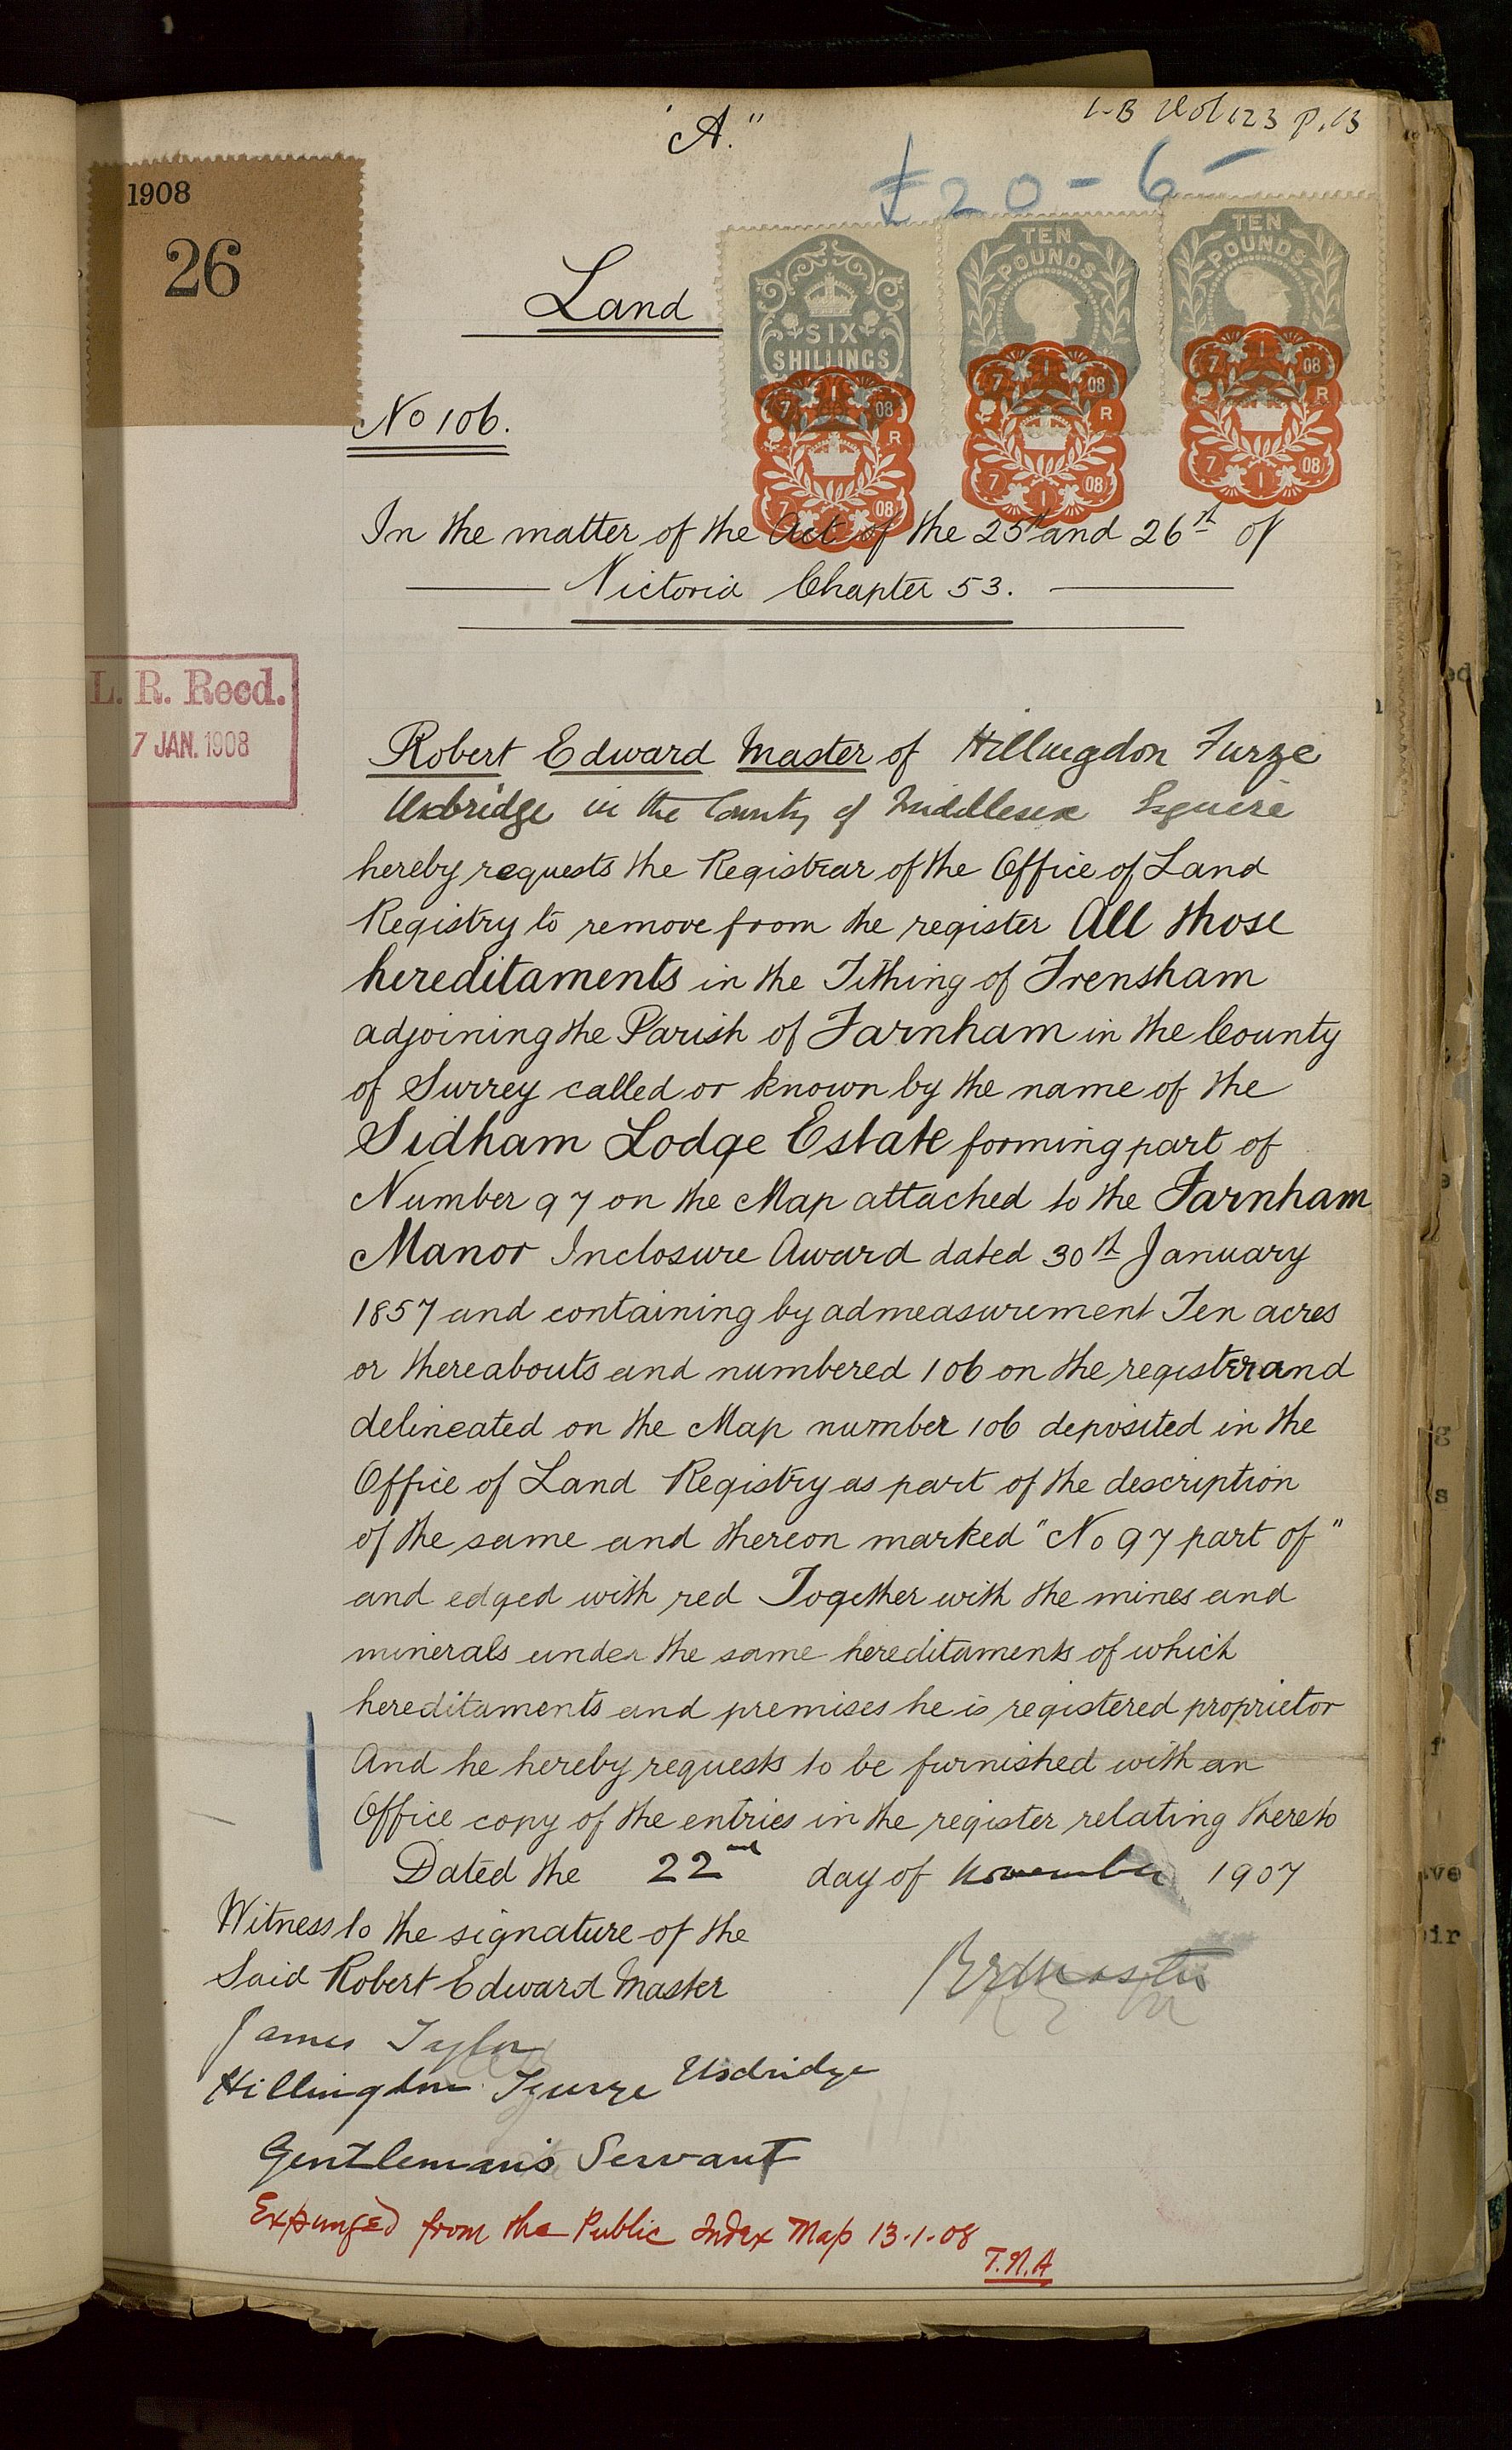 "A."
L-B Vol 123 p.13
£20-6-
1908
26
Land
SIX SHILLINGS
TEN POUNDS
TEN POUNDS
7 1 08
R
7 1 08
7 1 08
R
7 1 08
7 1 08
R
7 1 08
No 106.
In the matter of the Act of the 25th and 26th of
Victoria Chapter 53.
L. R. Recd.
7 JAN. 1908
Robert Edward Master of Hillingdon Furze
Uxbridge in the County of Middlesex Esquire
hereby requests the Registrar of the Office of Land
Registry to remove from the register All those
hereditaments in the Tithing of Frensham
adjoining the Parish of Farnham in the County
of Surrey called or known by the name of the
Sidham Lodge Estate forming part of
Number 97 on the Map attached to the Farnham
Manor Inclosure Award dated 30th January
1857 and containing by admeasurement Ten acres
or thereabouts and numbered 106 on the register and
delineated on the Map number 106 deposited in the
Office of Land Registry as part of the description
of the same and thereon marked "No 97 part of"
and edged with red Together with the mines and
minerals under the same hereditaments of which
hereditaments and premises he is registered proprietor
And he hereby requests to be furnished with an
Office copy of the entries in the register relating thereto
Dated the 22nd day of November 1907
Witness to the signature of the
Said Robert Edward Master
REMaster
James Taylor
Hillingdon Furze Uxbridge
Gentleman's Servant
Expunged from the Public Index Map 13.1.08
T.N.A